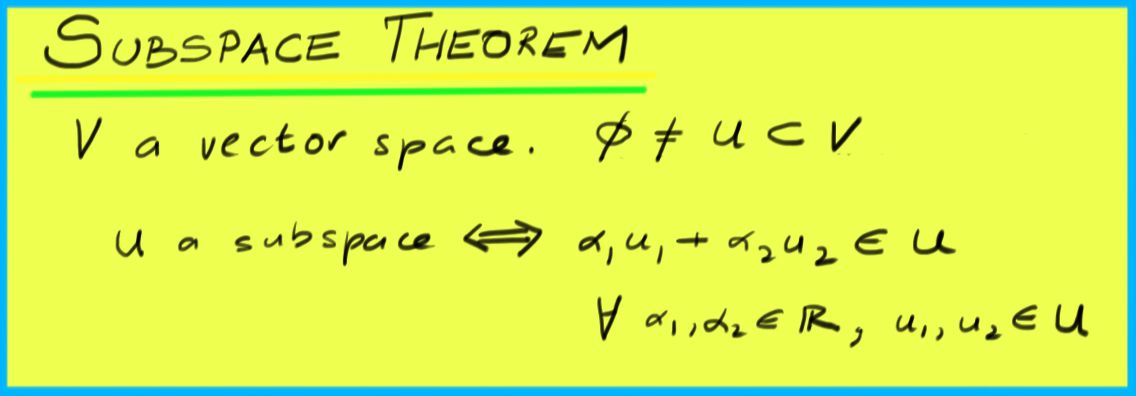 SUBSPACE THEOREM
V a vector space. ∅ ≠ U ⊂ V
U a subspace ⟺ α₁u₁ + α₂u₂ ∈ U
∀ α₁, α₂ ∈ ℝ, u₁, u₂ ∈ U